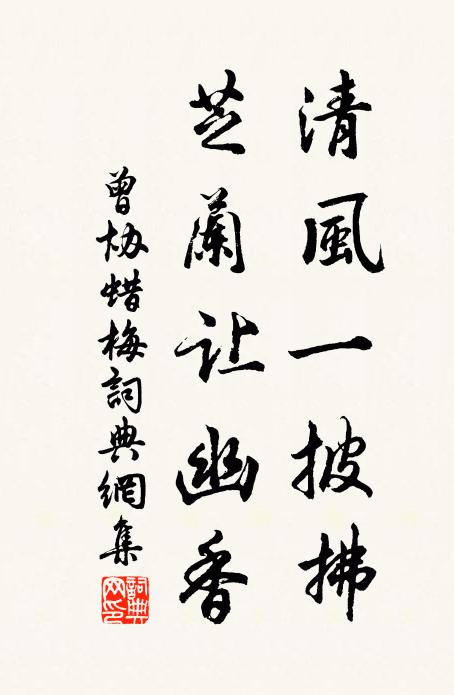 清風一披拂
芝蘭让幽香
曾协蜡梅詞典網集
詞典网印